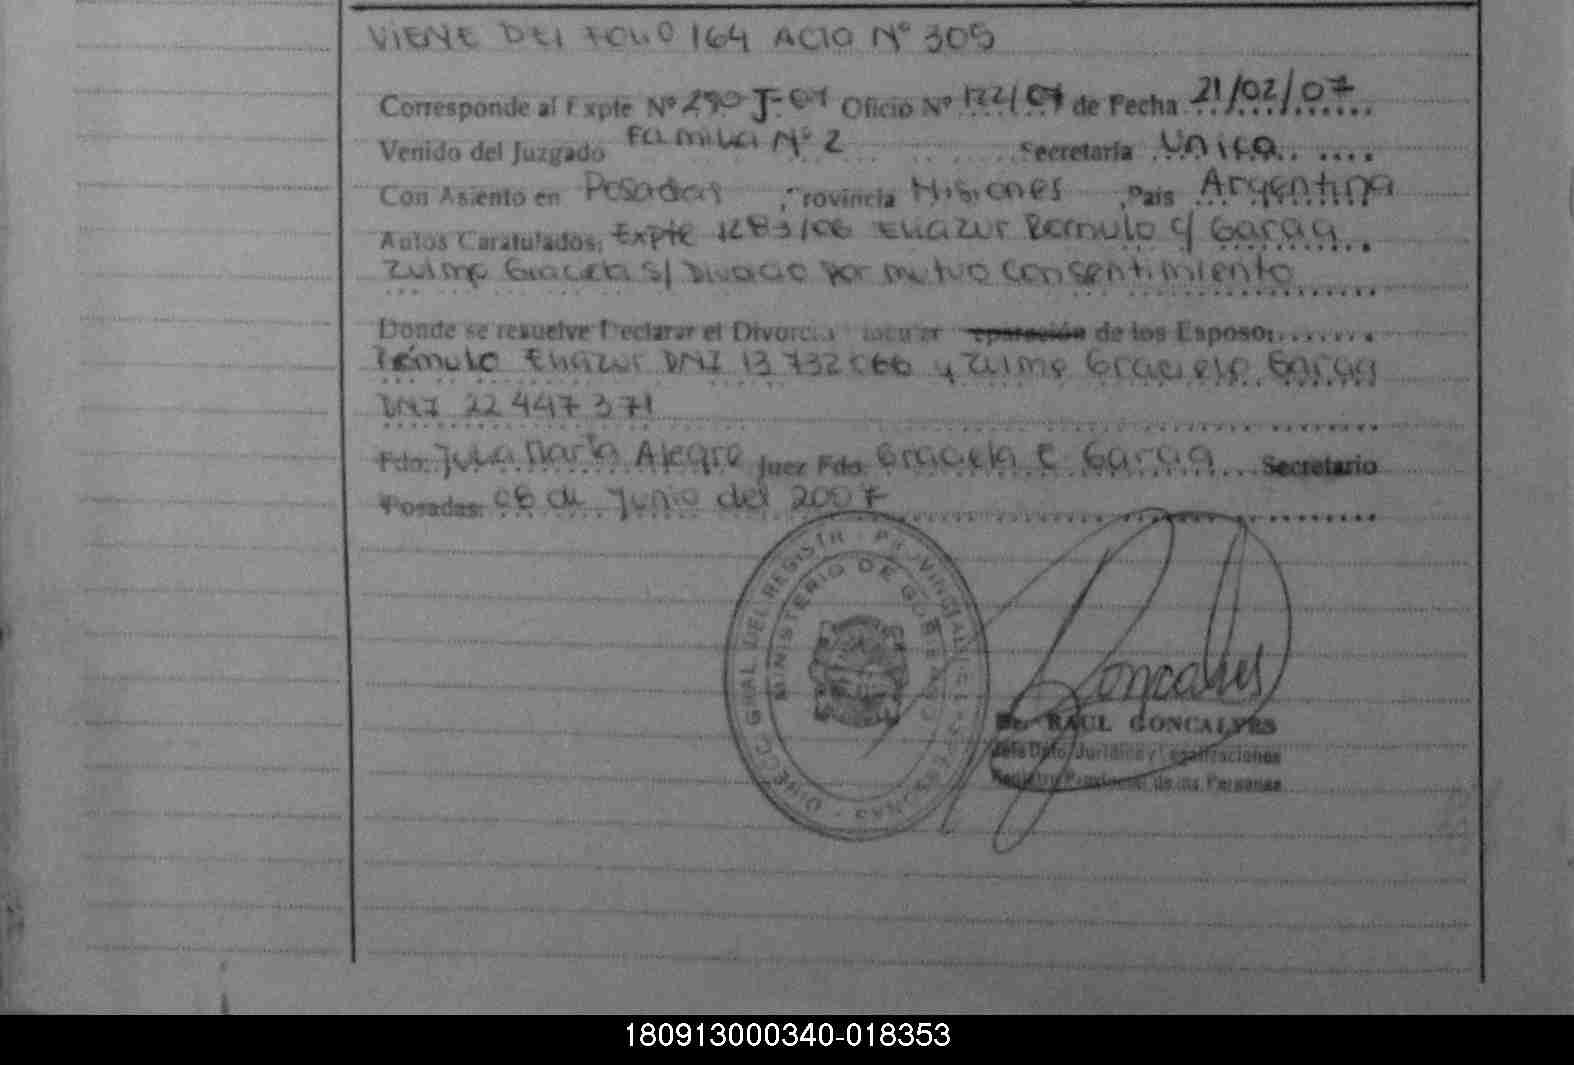 VIENE DEL FOLIO 164 ACTA Nº 305
Corresponde al Expte Nº 290-J-07 Oficio Nº 122/07 de Fecha 21/02/07
Venido del Juzgado Familia Nº 2 Secretaria Unica
Con Asiento en Posadas Provincia Misiones Pais Argentina
Autos Caratulados: Expte 1283/06 Eliazur Romulo c/ Garcia
Zulma Graciela s/ Divorcio por mutuo consentimiento
Donde se resuelve Declarar el Divorcio de los Esposo:
Rómulo Eliazur DNI 13 732 066 y Zulma Graciela Garcia
DNI 22 447 371
Fdo: Julia María Alegre Juez Fdo. Graciela E Garcia Secretario
Posadas: 06 de Junio del 2007
DIRECC. GRAL DEL REGISTR PROVINCIAL DE LAS PERSONAS
MINISTERIO DE GOBIERNO
Goncalves
Dr. RAUL GONCALVES
Jefe Dpto. Jurídico y Legalizaciones
Registro Provincial de las Personas
180913000340-018353